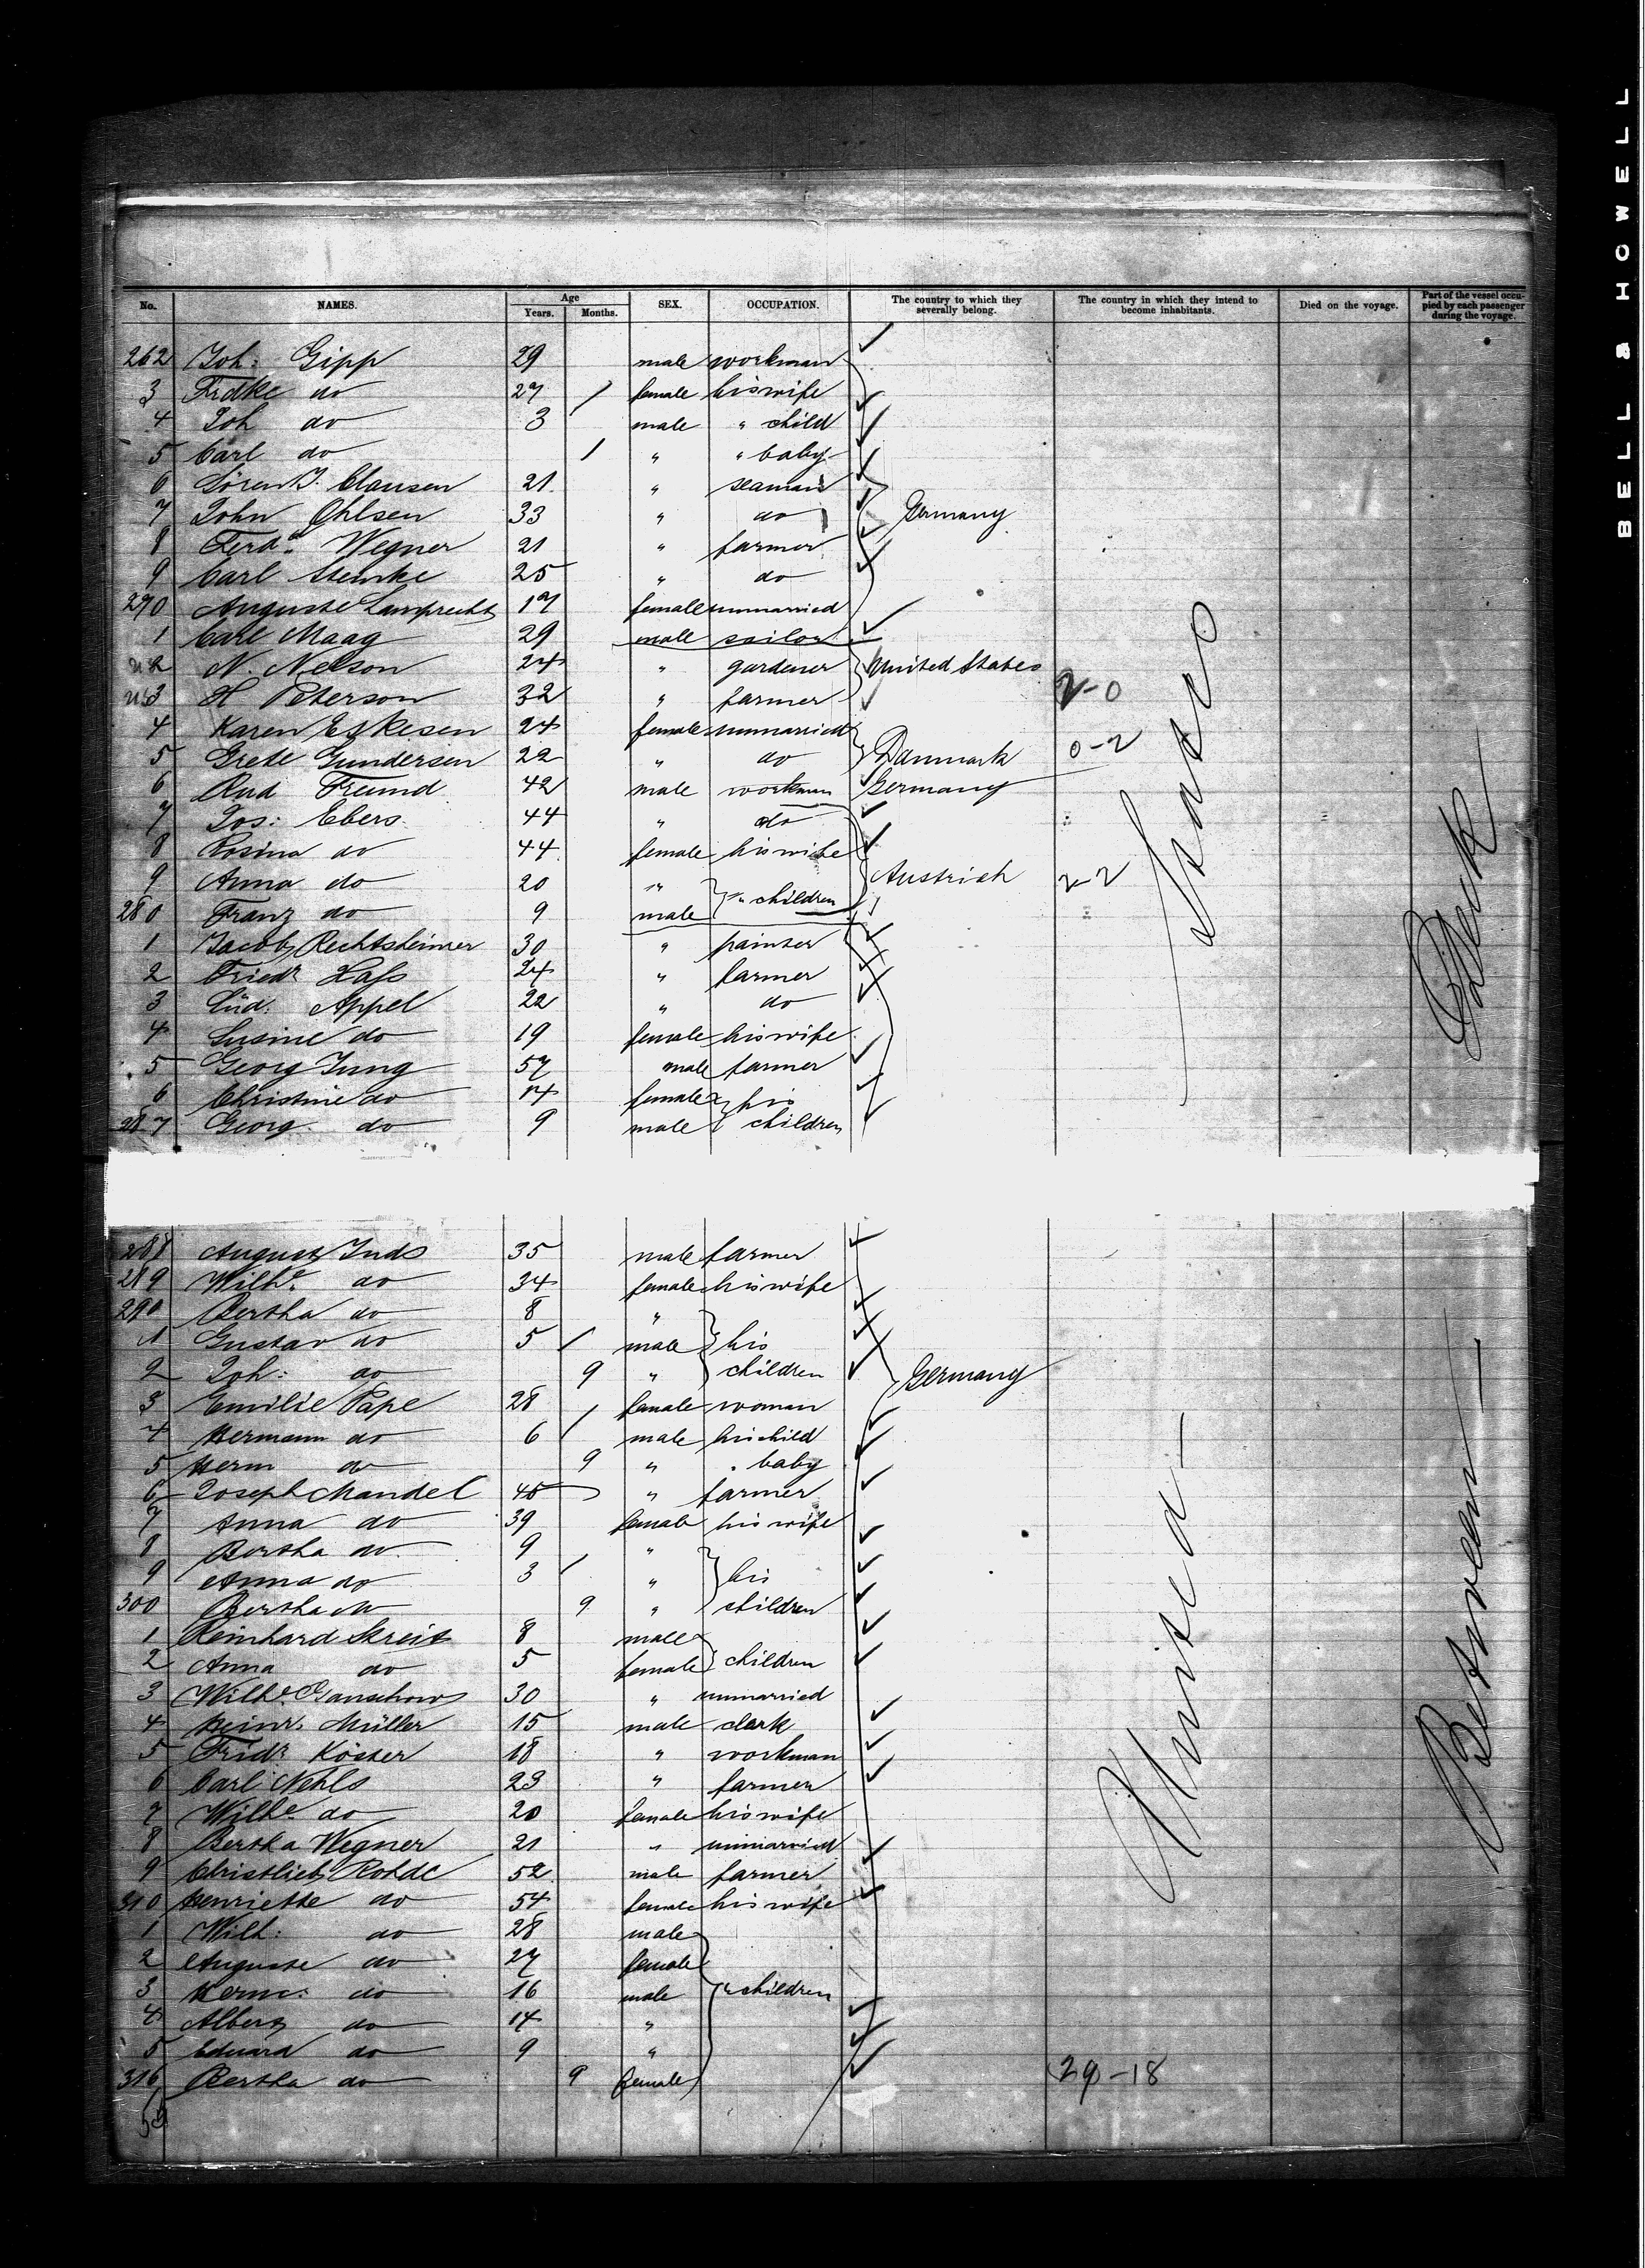 BELL & HOWELL
No. NAMES. Age Years. Months. SEX. OCCUPATION. The country to which they severally belong. The country in which they intend to become inhabitants. Died on the voyage. Part of the vessel occupied by each passenger during the voyage.
262 Joh: Gipp 29 male workman
3 Fridke do 27 female his wife
4 Joh do 3 male " child
5 Carl do 1 " " baby
6 Sören J. Clausen 21 " seaman
7 John Ohlsen 33 " do Germany
8 Ferd. Wegner 21 " farmer
9 Carl Stemke 25 " do
270 Auguste Lamprecht 17 female unmarried
1 Carl Maag 29 male sailor
2 N. Nelson 24 " gardener United States
3 H Peterson 32 " farmer 2-0
4 Karen Eskesen 24 female unmarried
5 Grete Gundersen 22 " do Danmark 0-2
6 Aud Freund 42 male workman Germany
7 Jos: Ebers 44 " do
8 Rosina do 44 female his wife
9 Anna do 20 " " children Austrich 2-2
280 Franz do 9 male
1 Jacob Rechtsheimer 30 " painter
2 Friedr Hass 24 " farmer
3 Lud. Appel 22 " do
4 Susine do 19 female his wife
5 Georg Jung 57 male farmer
6 Christine do 14 female his
287 Georg do 9 male children
States
Deck
288 August Inds 35 male farmer
289 Wilhe do 34 female his wife
290 Bertha do 8 "
1 Gustav do 5 male his
2 Joh: do 9 " children Germany
3 Emilie Pape 28 female woman
4 Hermann do 6 male his child
5 Herm do 9 " " baby
6 Joseph Mandel 45 " farmer
7 Anna do 39 female his wife
8 Bertha do 9 "
9 Anna do 3 " his
300 Bertha do 9 " children
1 Reinhard Streit 8 male
2 Anna do 5 female children
3 Wilhe Ganschow 30 " unmarried
4 Heinr. Müller 15 male clerk
5 Fridr Köster 18 " workman
6 Carl Nehls 23 " farmer
7 Wilhe do 20 female his wife
8 Bertha Wegner 21 " unmarried
9 Christlieb Rohde 52 male farmer
310 Henriette do 54 female his wife
1 Wilh: do 28 male
2 Auguste do 27 female
3 Herm: do 16 male " children
4 Albert do 14 "
5 Eduard do 9 "
316 Bertha do 9 female 29-18
United
Between